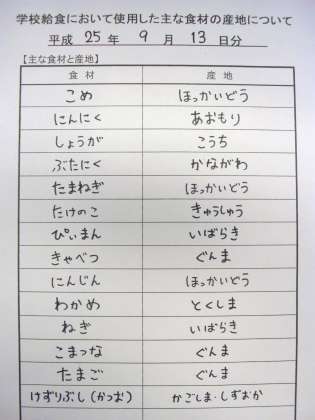 学校給食において使用した主な食材の産地について
平成 25 年 9 月 13 日分
【主な食材と産地】
食材 産地
こめ ほっかいどう
にんにく あおもり
しょうが こうち
ぶたにく かながわ
たまねぎ ほっかいどう
たけのこ きゅうしゅう
ぴぃまん いばらき
きゃべつ ぐんま
にんじん ほっかいどう
わかめ とくしま
ねぎ いばらき
こまつな ぐんま
たまご ぐんま
けずりぶし(かつお) かごしま・しずおか